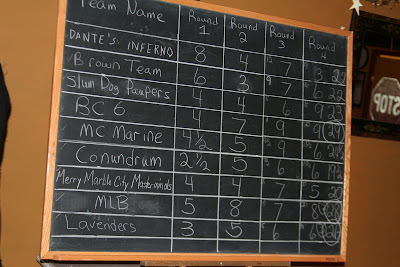 Team Name Round 1 Round 2 Round 3 Round 4
DANTE'S INFERNO 8 4 7 3
Brown Team 6 3 7 6 22
Slum Dog Paupers 4 4 6 9 23
BC 6 4 7 9 9
MC Marine 4 1/2 5 9 6
Conundrum 2 1/2 5 6 6
Merry Marble City Masterminds 4 4 7 5
MLB 5 8 7 8
Lavenders 3 5 6 6
STOP